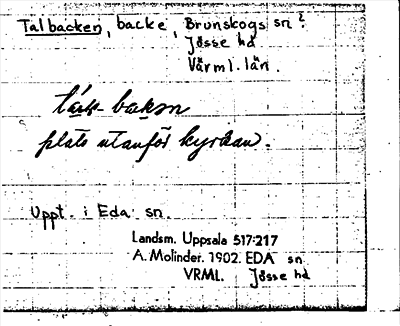 Talbacken, backe, Brunskogs sn?
Jösse hd
Värml. län.
bakən
plats utanför kyrkan.
Uppt. i Eda sn.
Landsm. Uppsala 517:217
A. Molinder. 1902. EDA sn
VRML. Jösse hd